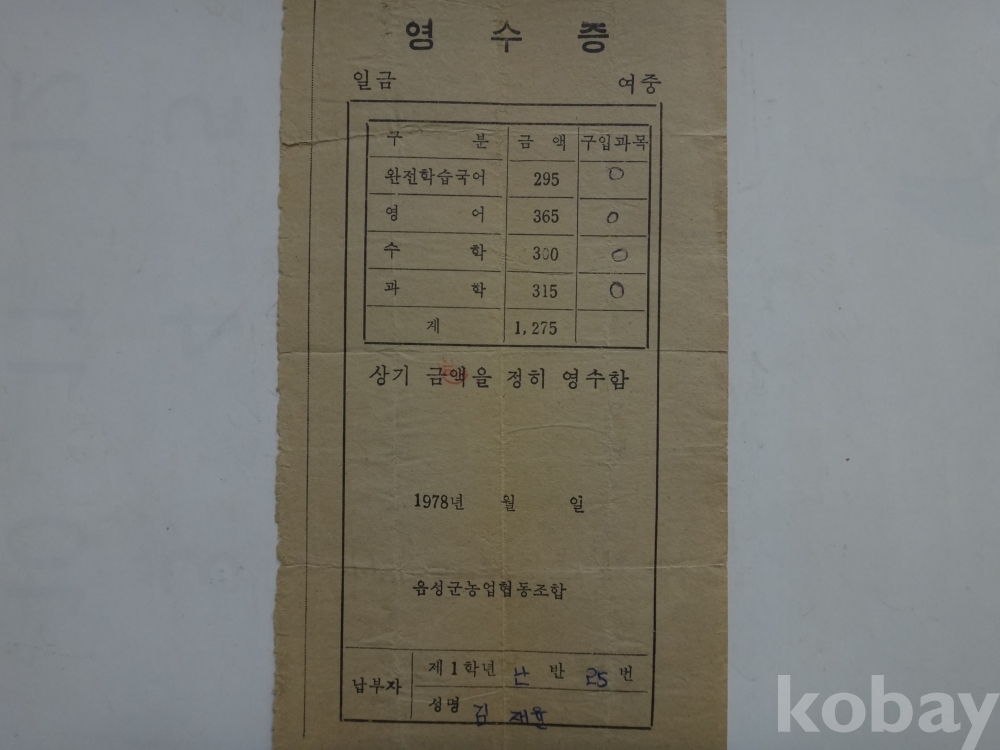 영 수 증
일금 여중
구 분 금 액 구입과목
완전학습국어 295 O
영 어 365 O
수 학 300 O
과 학 315 O
계 1,275
상기 금액을 정히 영수함
1978년 월 일
음성군농업협동조합
납부자 제1학년 난 반 25 번
성명 김 재윤
kobay